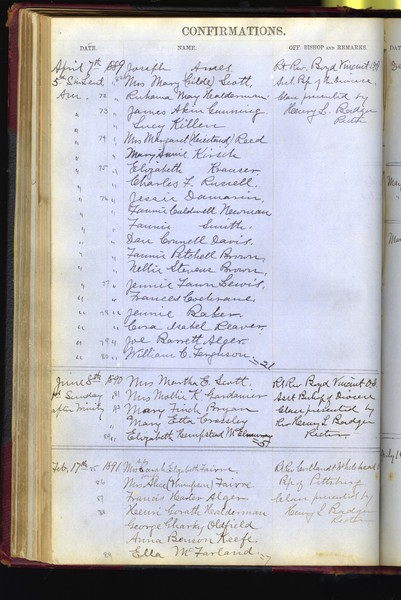 CONFIRMATIONS.
DATE. NAME. OFF. BISHOP AND REMARKS.
April 7th 1889 Joseph Ames Rt Rev Boyd Vincent D.D
5th Sunday Mrs Mary Scott, Asst Bp of the Diocese
72 Ruhama May Healderman Class presented by
73 James Akin Gunning Henry L. Badger
Lucy Killen Rector
74 Mrs Margaret Reed
Mary Annie Kirsch
75 Elizabeth Krauser
Charles F. Russell.
76 Jessie Damarin
Fannie Caldwell Newman
Fannie Smith.
Dan Connell Davis.
Fannie Pitchell Brown,
Nellie Stevens Brown,
77 Jennie Fawn Lewis.
Frances Cochrane
78 Jennie Baker.
Cora Isabel Reaver.
79 Joe Barrett Alger.
80 William C. Ferguson. =21
June 8th 1890 Mrs Martha E. Scott. Rt Rev Boyd Vincent D.D
1st Sunday 81 Mrs Mollie K. Gardener Asst Bishop of Diocese
after Trinity 82 Mary Finch Bryan Class presented by
Mary Etta Crossley Rev Henry L Badger
Elizabeth Hempstead =5 Rector
Feb. 17th 1891 Mrs Sarah Elizabeth Faivre, Rt Rev Cortlandt Whitehead
86 Mrs Alice (Thompson) Faivre Bp of Pittsburg
87 Francis Harter Alger Class presented by
88 Henri Gorath Healderman Henry L Badger
George Charky Oldfield Rector
Anna Benson Keefe
89 Ella McFarland =7